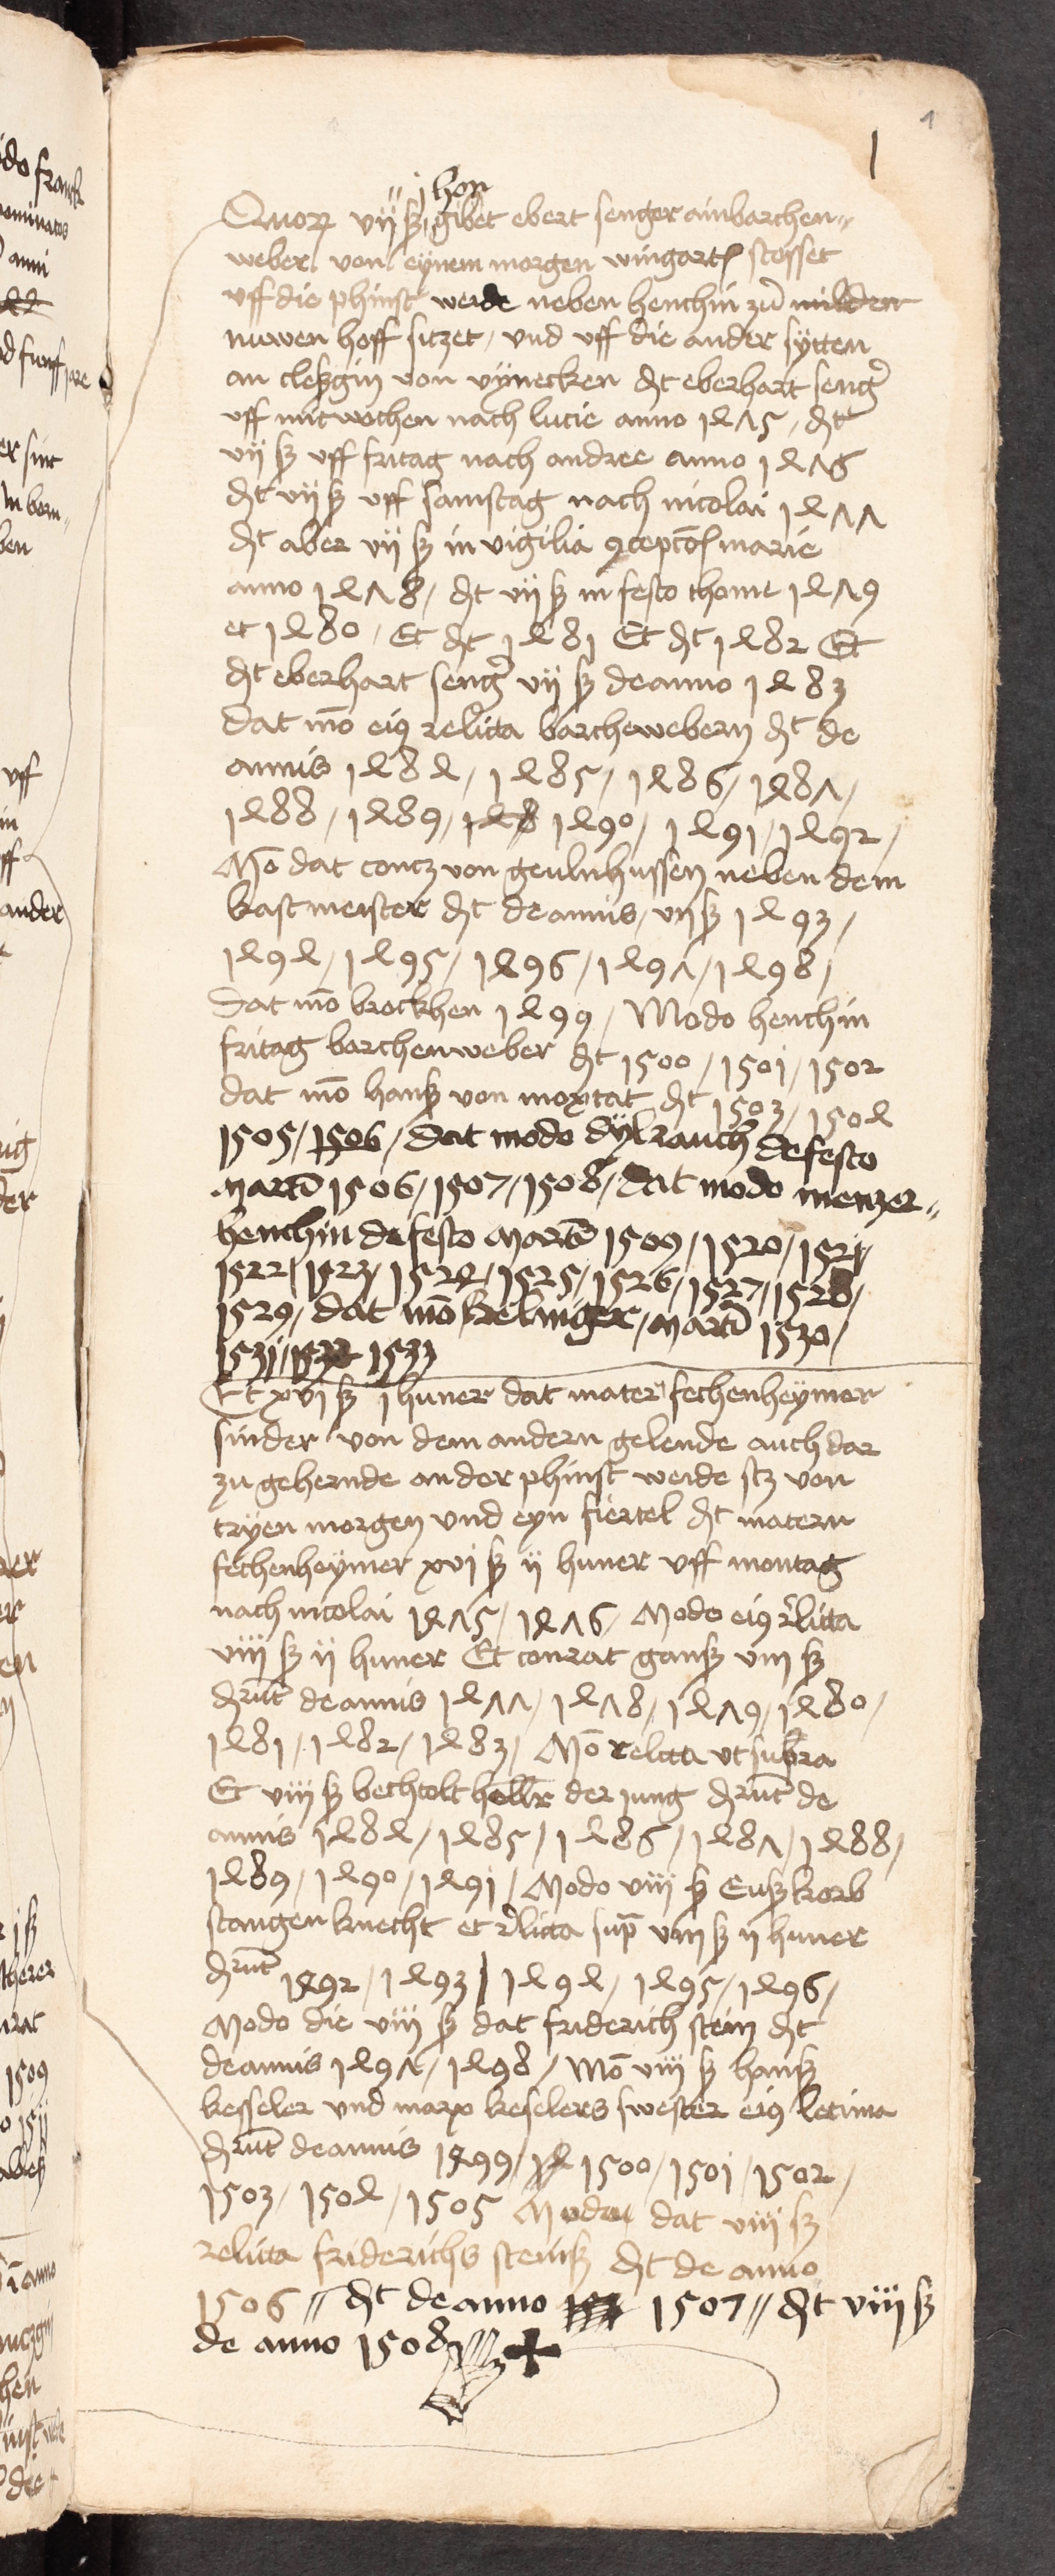 1
1
j hon
Quorum vij ß gibet ebert senger ain barchen„
weber von eynem morgen wingarts stosset
vff die phinst weide neben henchin zum milden
nuwen hoff sitzet / vnd vff die ander sytten
an cleßgin von vynecken dt eberhart senger
vff mitwochen nach lucie anno 1475 / dt
vij ß vff fritag nach andree anno 1476
dt vij ß vff samstag nach nicolai 1477
dt aber vij ß in vigilia concepconis marie
anno 1478 / dt vij ß in festo thome 1479
et 1480 / Et dt 1481 Et dt 1482 Et
dt eberhart senger vij ß de anno 1483
dat mo eius relicta barchewebern dt de
annis 1484 / 1485 / 1486 / 1487 /
1488 / 1489 / 148 1490 / 1491 / 1492 /
Mo dat contz von geulnhussen neben dem
kastmeister dt de annis / vij ß 1493 /
1494 / 1495 / 1496 / 1497 / 1498 /
Dat mo brockhen 1499 / Modo henchin
fritag barchenweber dt 1500 / 1501 / 1502
dat mo hanß von moxstat dt 1503 / 1504
1505 / 1506 / dat modo dylrauch de festo
martini 1506 / 1507 / 1508 / dat modo menzer„
henchin de festo martini 1509 / 1520 / 1521 /
1522 / 1523 / 1524 / 1525 / 1526 / 1527 / 1528 /
1529 / dat mo kelinger / martini 1530 /
1531 / 1532 1533
Et xvj ß j huner dat mater fechenheymer
sinder von dem andern gelende auch dar
zu gehernde an der phinst weide stz von
tryen morgen vnd eyn fiertel dt matern
fechenheymer xvj ß ij huner vff montag
nach nicolai 1475 / 1476 / Modo eius relicta
viij ß ij huner Et conrat ganß viij ß
derunt de annis 1477 / 1478 / 1479 / 1480 /
1481 / 1482 / 1483 / Mo relicta vt supra
Et viij ß bechtolt heller der jung derunt de
annis 1484 / 1485 / 1486 / 1487 / 1488 /
1489 / 1490 / 1491 / Modo viij ß Eußkorb
stangen knecht et relicta supra viij ß ij huner
derunt 1492 / 1493 / 1494 / 1495 / 1496 /
Modo die viij ß dat friderich stein dt
de annis 1497 / 1498 / Mo viij ß hanß
kesseler vnd marx keselers swester eius letima
derunt de annis 1499 / 1500 / 1501 / 1502 /
1503 / 1504 / 1505 Modo dat viij ß
relicta friderichs steinß dt de anno
1506 // dt de anno 1507 // dt viij ß
de anno 1508